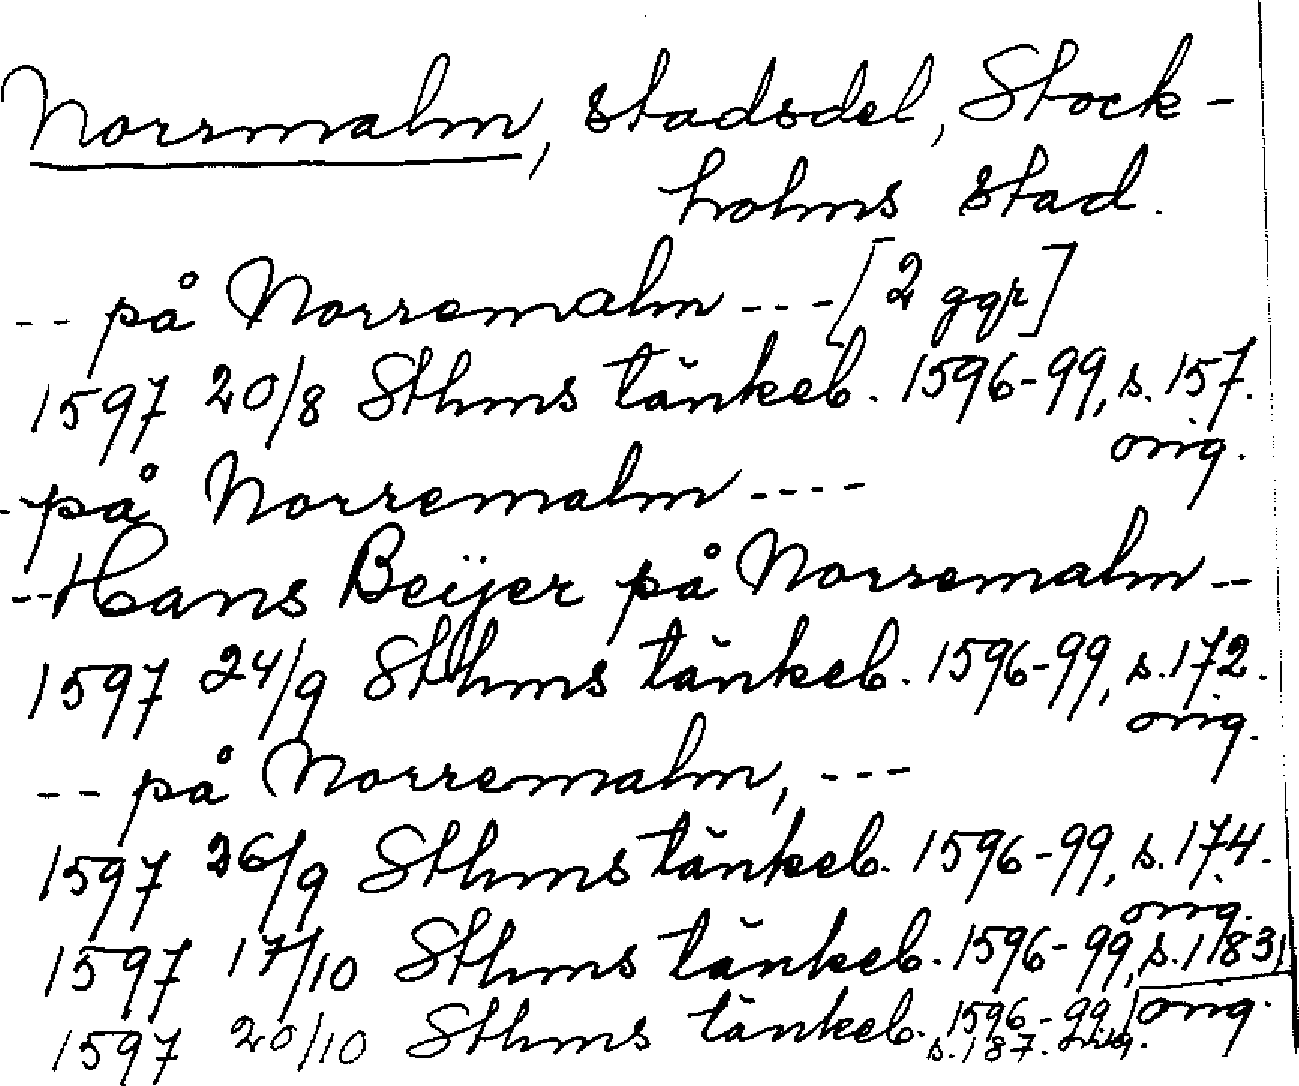 Norrmalm, stadsdel, Stock-
holms stad.
-- på Norremalm --- [2 ggr]
1597 20/8 Sthms tänkeb. 1596-99, s. 157.
orig.
- på Norremalm ----
-- Hans Beijer på Norremalm --
1597 24/9 Sthms tänkeb. 1596-99, s. 172.
orig.
-- på Norremalm, ---
1597 26/9 Sthms tänkeb. 1596-99, s. 174.
orig.
1597 17/10 Sthms tänkeb. 1596-99, s. 183,
orig.
1597 20/10 Sthms tänkeb. 1596-99,
s. 187. orig.